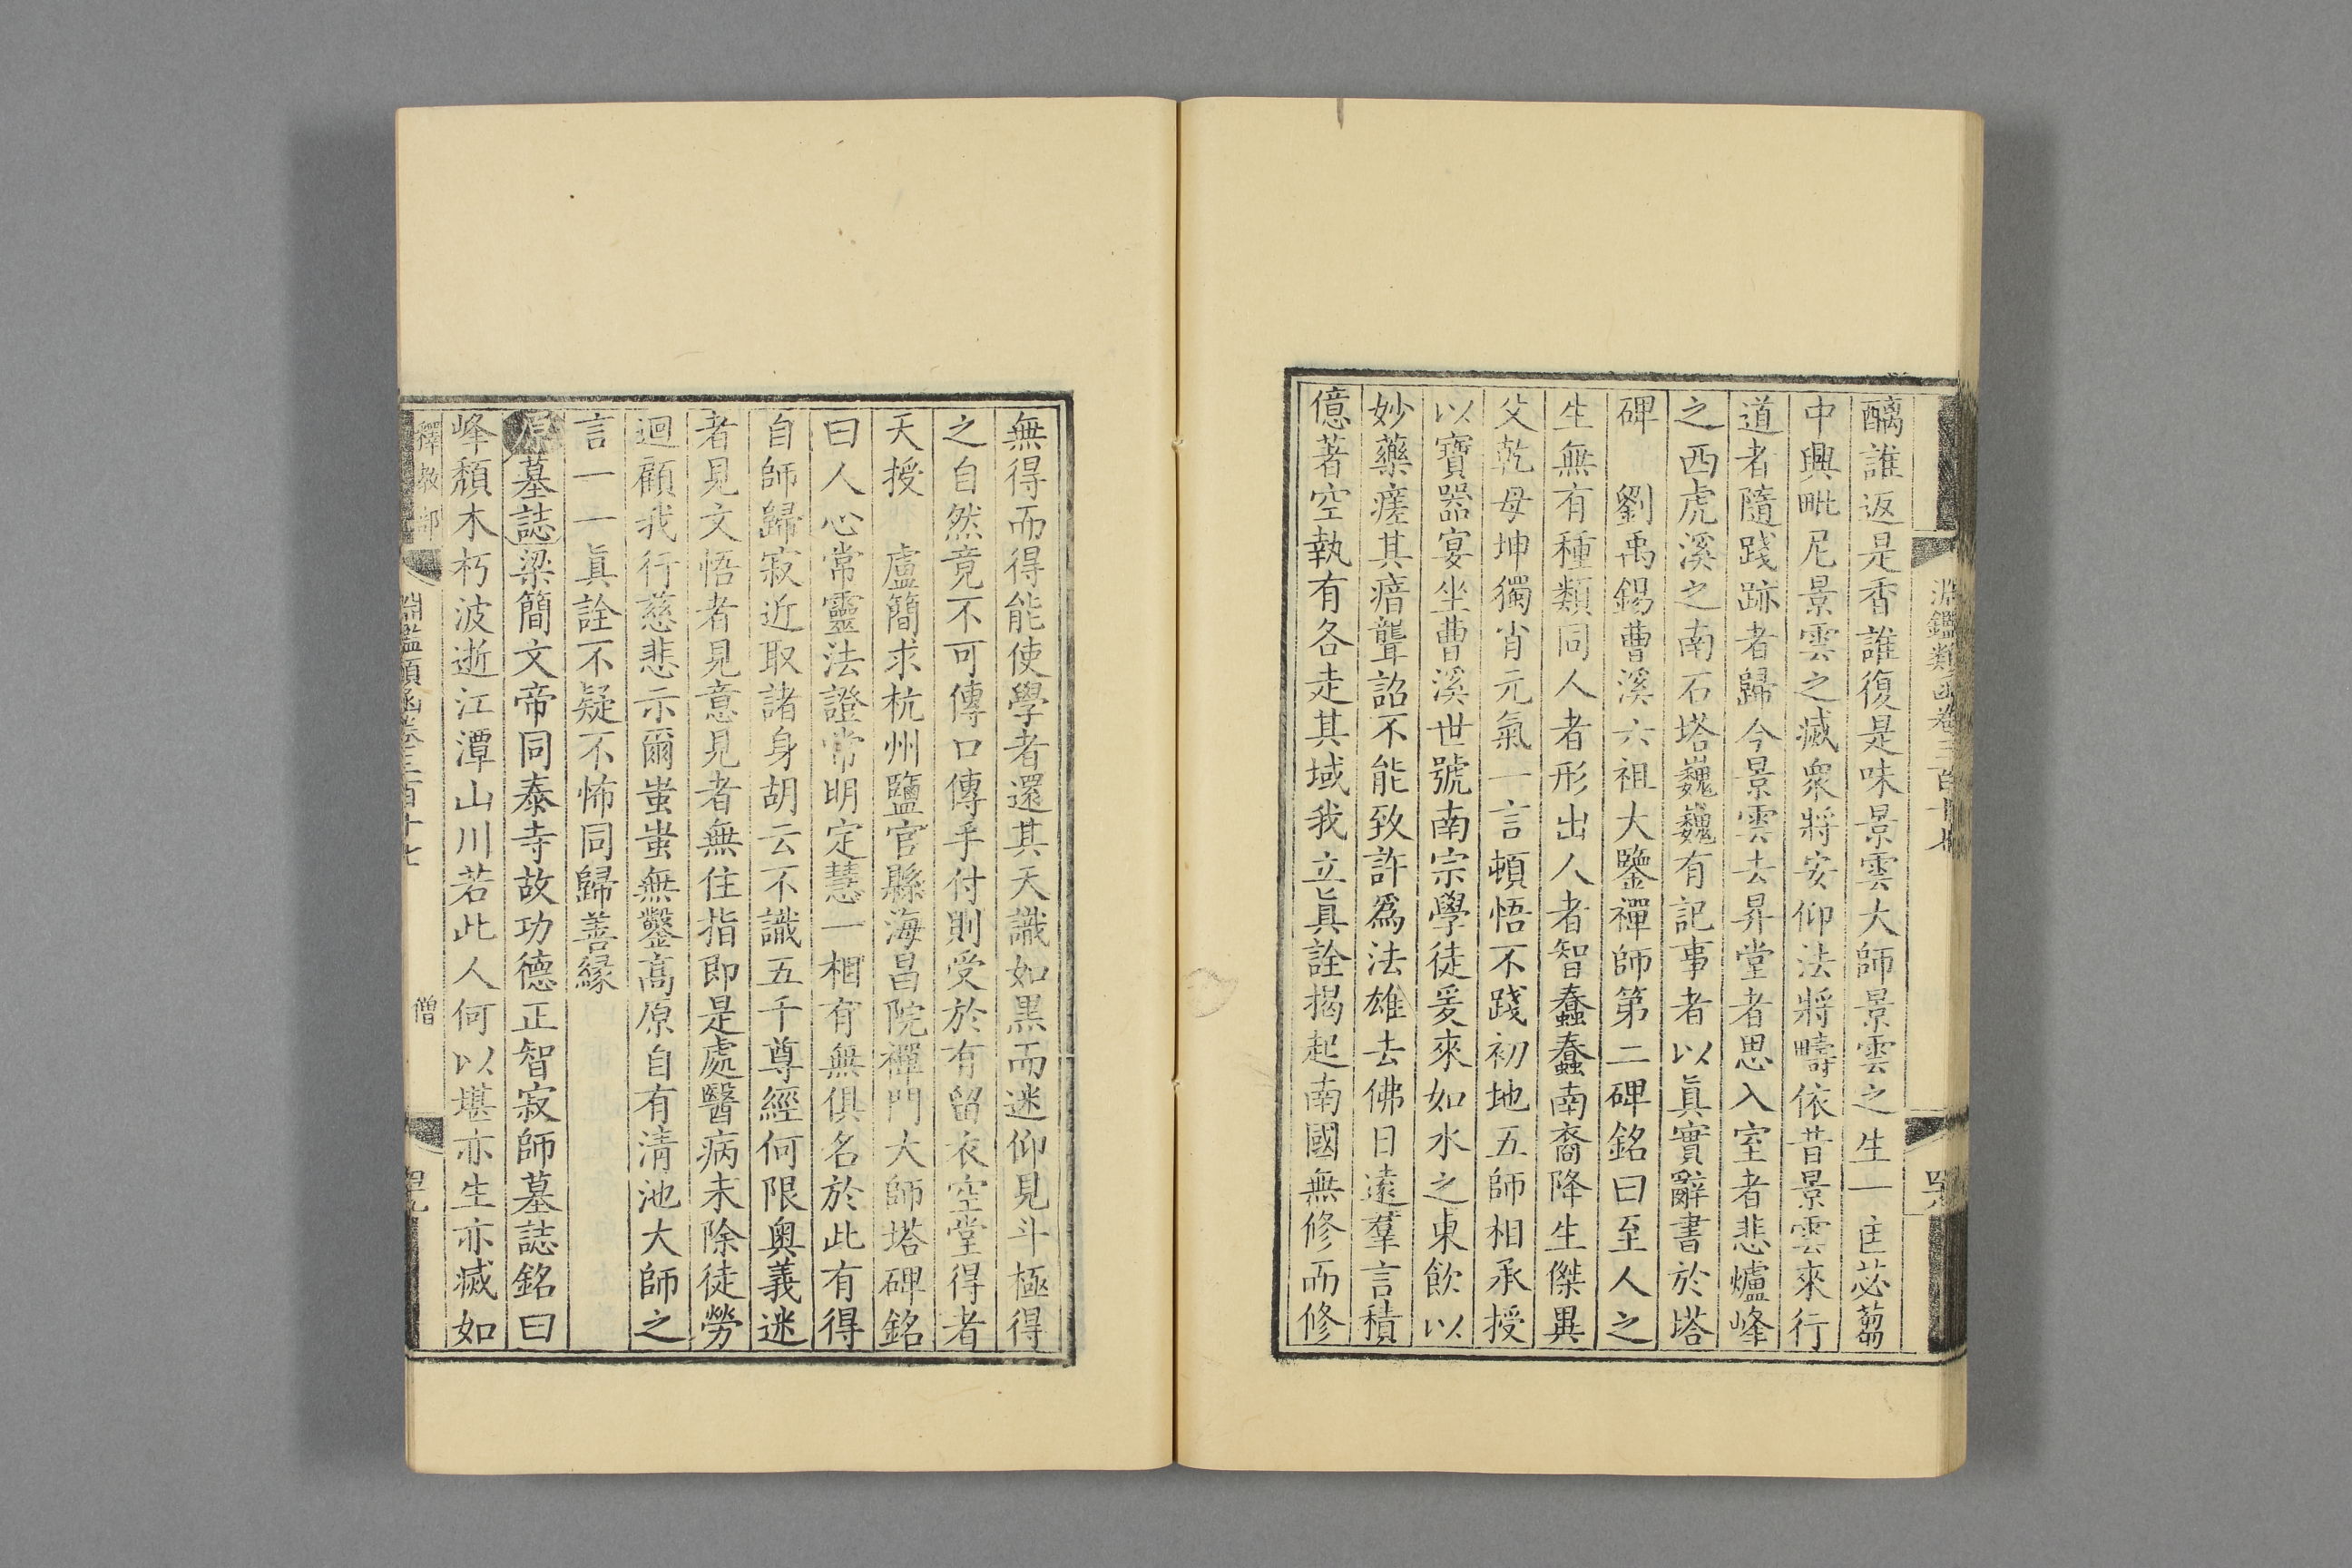 淵鑑類函卷三百十七
醨誰返是香誰復是味景雲大師景雲之生一匡苾蒭
中興毗尼景雲之滅衆將安仰法將疇依昔景雲來行
道者隨踐跡者歸今景雲去昇堂者思入室者悲爐峰
之西虎溪之南石塔巍巍有記事者以眞實辭書於塔
碑　劉禹錫曹溪六祖大鑒禪師第二碑銘曰至人之
生無有種類同人者形出人者智蠢蠢南裔降生傑異
父乾母坤獨肖元氣一言頓悟不踐初地五師相承授
以寶器宴坐曹溪世號南宗學徒爰來如水之東飲以
妙藥瘥其瘖聾詔不能致許爲法雄去佛日遠羣言積
億著空執有各走其域我立眞詮揭起南國無修而修
無得而得能使學者還其天識如黑而迷仰見斗極得
之自然竟不可傳口傳手付則受於有留衣空堂得者
天授　盧簡求杭州鹽官縣海昌院禪門大師塔碑銘
曰人心常靈法證常明定慧一相有無俱名於此有得
自師歸寂近取諸身胡云不識五千尊經何限奥義迷
者見文悟者見意見者無住指即是處醫病未除徒勞
迴顧我行慈悲示爾蚩蚩無鑿高原自有清池大師之
言一一眞詮不疑不怖同歸善緣
原墓誌梁簡文帝同泰寺故功德正智寂師墓誌銘曰
峰頹木朽波逝江潭山川若此人何以堪亦生亦滅如
釋教部　淵鑑類函卷三百十七　僧　四九